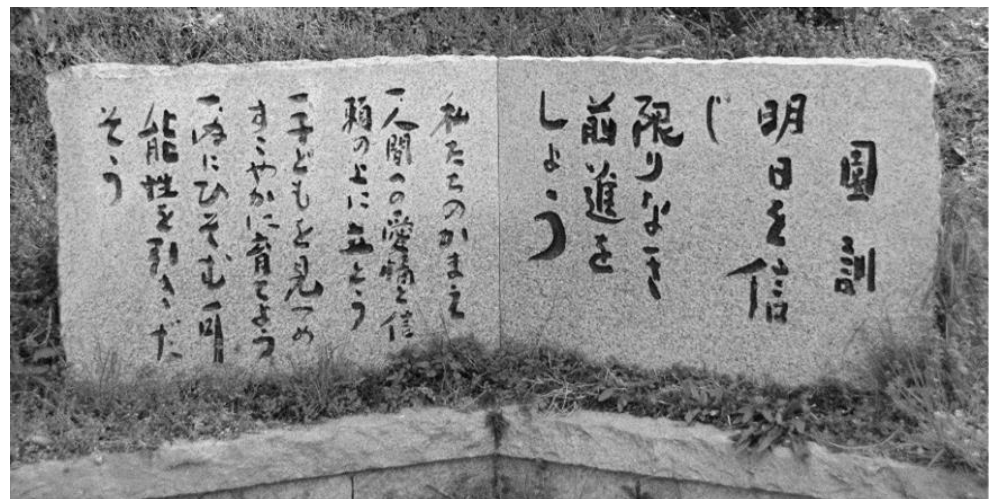 園訓
明日を信
じ
限りなき
前進を
しよう
私たちのかまえ
一人間への愛情と信
頼の上に立とう
一子どもを見つめ
すこやかに育てよう
一内にひそむ可
能性を引きだ
そう